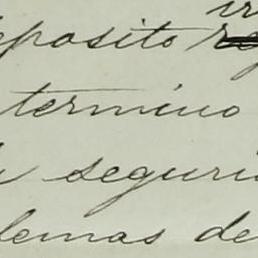 eposito
termino
seguri
lemas de